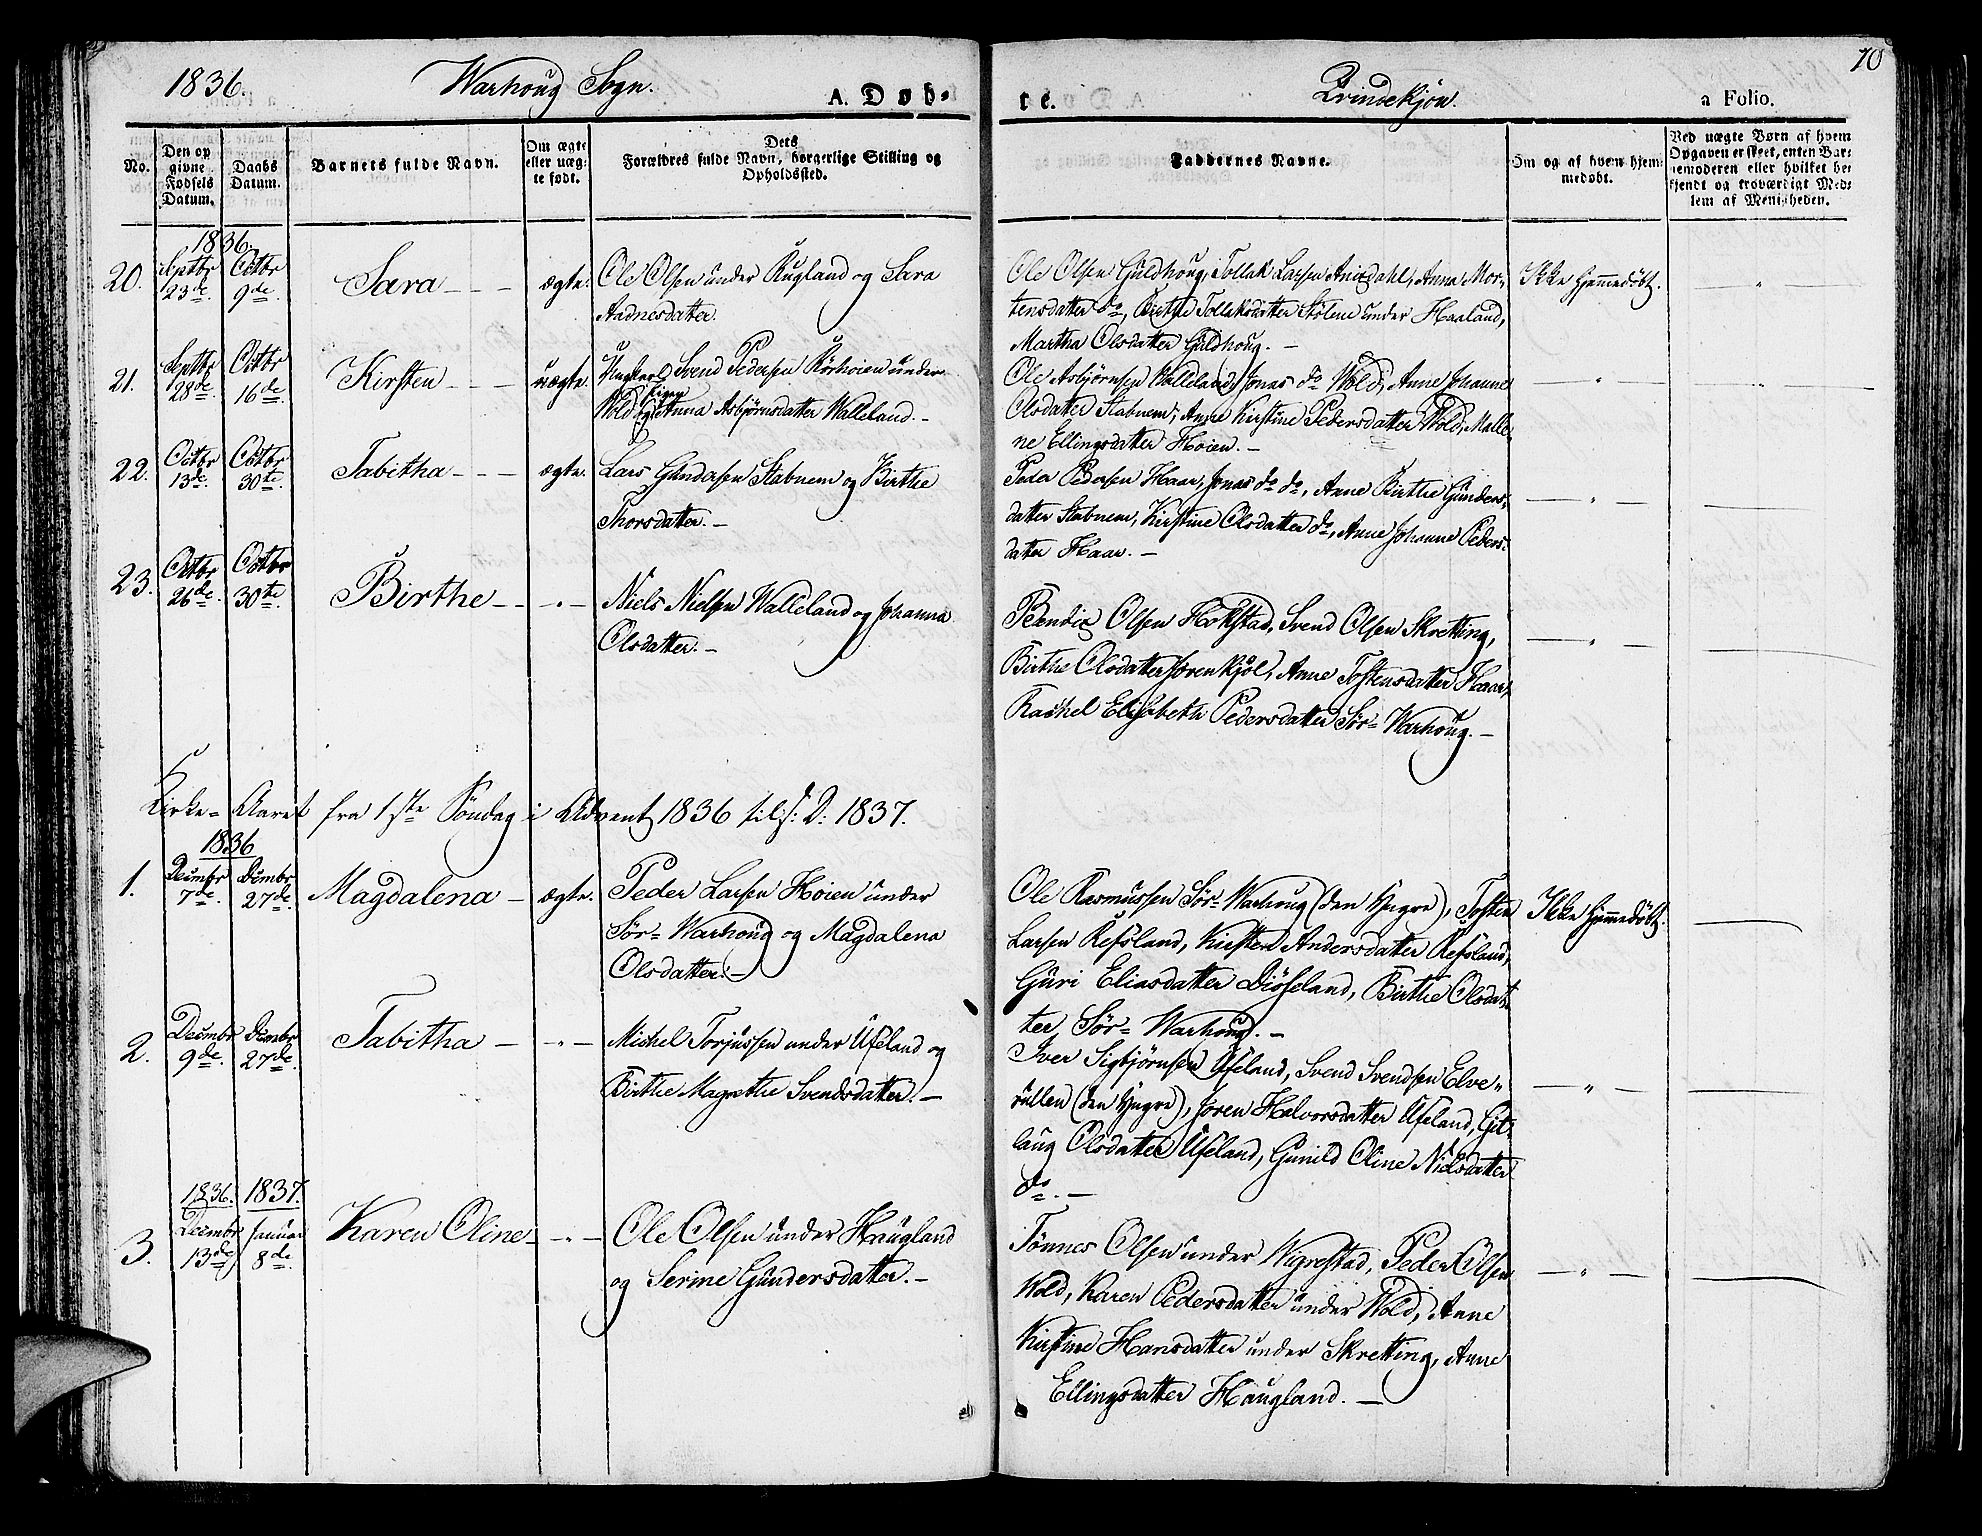 1836. Warhoug Sogn. A. Døb- te. Qvindekjøn. a Folio. 70
No.
Den op
givne
Fødsels
Datum.
Daabs
Datum.
Barnets fulde Navn.
Om ægte
eller uæg-
te født.
Dets
Forældres fulde Navn, borgerlige Stilling og
Opholdssted.
Faddernes Navne.
Om og af hvem hjem-
medøbt.
Ved uægte Børn af hvem
Opgaven er skeet, enten Bar-
nemoderen eller hvilket be-
kjendt og troværdigt Med-
lem af Menigheden.
1836.
20. Septbr 23de Octbr 9de. Sara - - - ægte.
Ole Olsen under Rugland og Sara
Aadnesdatter.
Ole Olsen Guldhoug, Tollak Larsen Aniksdahl, Anna Mor-
tensdatter do, Birthe Tollaksdatter Stølene under Haaland,
Martha Olsdatter Guldhoug. -
Ikke hjemmedøbt. — " —
21. Septbr 28de Octbr 16de. Kirsten - - - uægte.
Ungkarl Svend Pedersen Rørheien under
Wold og Pigen Anna Asbjørnsdatter Walleland. -
Ole Asbjørnsen Walleland, Jonas do Wold, Anne Johanne
Olsdatter Stabnem, Anne Kirstine Pedersdatter Wold, Malle-
ne Ellingsdatter Høien. -
— " — — " —
22. Octbr 13de. Octbr 30te. Tabitha - - - ægte.
Lars Gundersen Stabnem og Birthe
Thorsdatter. -
Peder Pedersen Haar, Jonas do do, Anne Birthe Gunders-
datter Stabnem, Kirstine Olsdatter do, Anne Johanne Peders-
datter Haar. -
— " —
23. Octbr 26de. Octbr 30te. Birthe - - - " -
Niels Nielsen Walleland og Johanna
Olsdatter. -
Bendix Olsen Hokstad, Svend Olsen Skretting,
Birthe Olsdatter Sørenkjøl, Anne Tostensdatter Haar,
Rachel Elisabeth Pedersdatter Sør- Warhoug. -
— " —
Kirke- Aaret fra 1ste Søndag i Advent 1836 til s: D: 1837.
1836
1. Decmbr 7de. Decmbr 27de. Magdalena - ægte.
Peder Larsen Høien under
Sør- Warhoug og Magdalena
Olsdatter. -
Ole Rasmussen Sør- Warhoug (den Yngre), Tosten
Larsen Refsland, Kirsten Andersdatter Refsland,
Guri Eliasdatter Diøseland, Birthe Olsdat-
ter Sør- Warhoug. -
Ikke hjemmedøbt.
2. Decmbr 9de. Decmbr 27de. Tabitha - - " -
Michel Torjussen under Ueland og
Birthe Magrethe Svendsdatter. -
Iver Sigbjørnsen Ueland, Svend Svendsen Elve-
rullen (den Yngre), Joren Halvorsdatter Ueland, Git-
laug Olsdatter Ueland, Gunild Oline Nielsdatter
do. -
— " —
1836. 1837.
3. Decmbr 13de Januar 8de. Karen Oline - - " -
Ole Olsen under Haugland
og Serine Gundersdatter. -
Tønnes Olsen under Wigrestad, Peder Olsen
Wold, Karen Pedersdatter under Wold, Anne
Kirstine Hansdatter under Skretting, Anne
Ellingsdatter Haugland. -
— " —